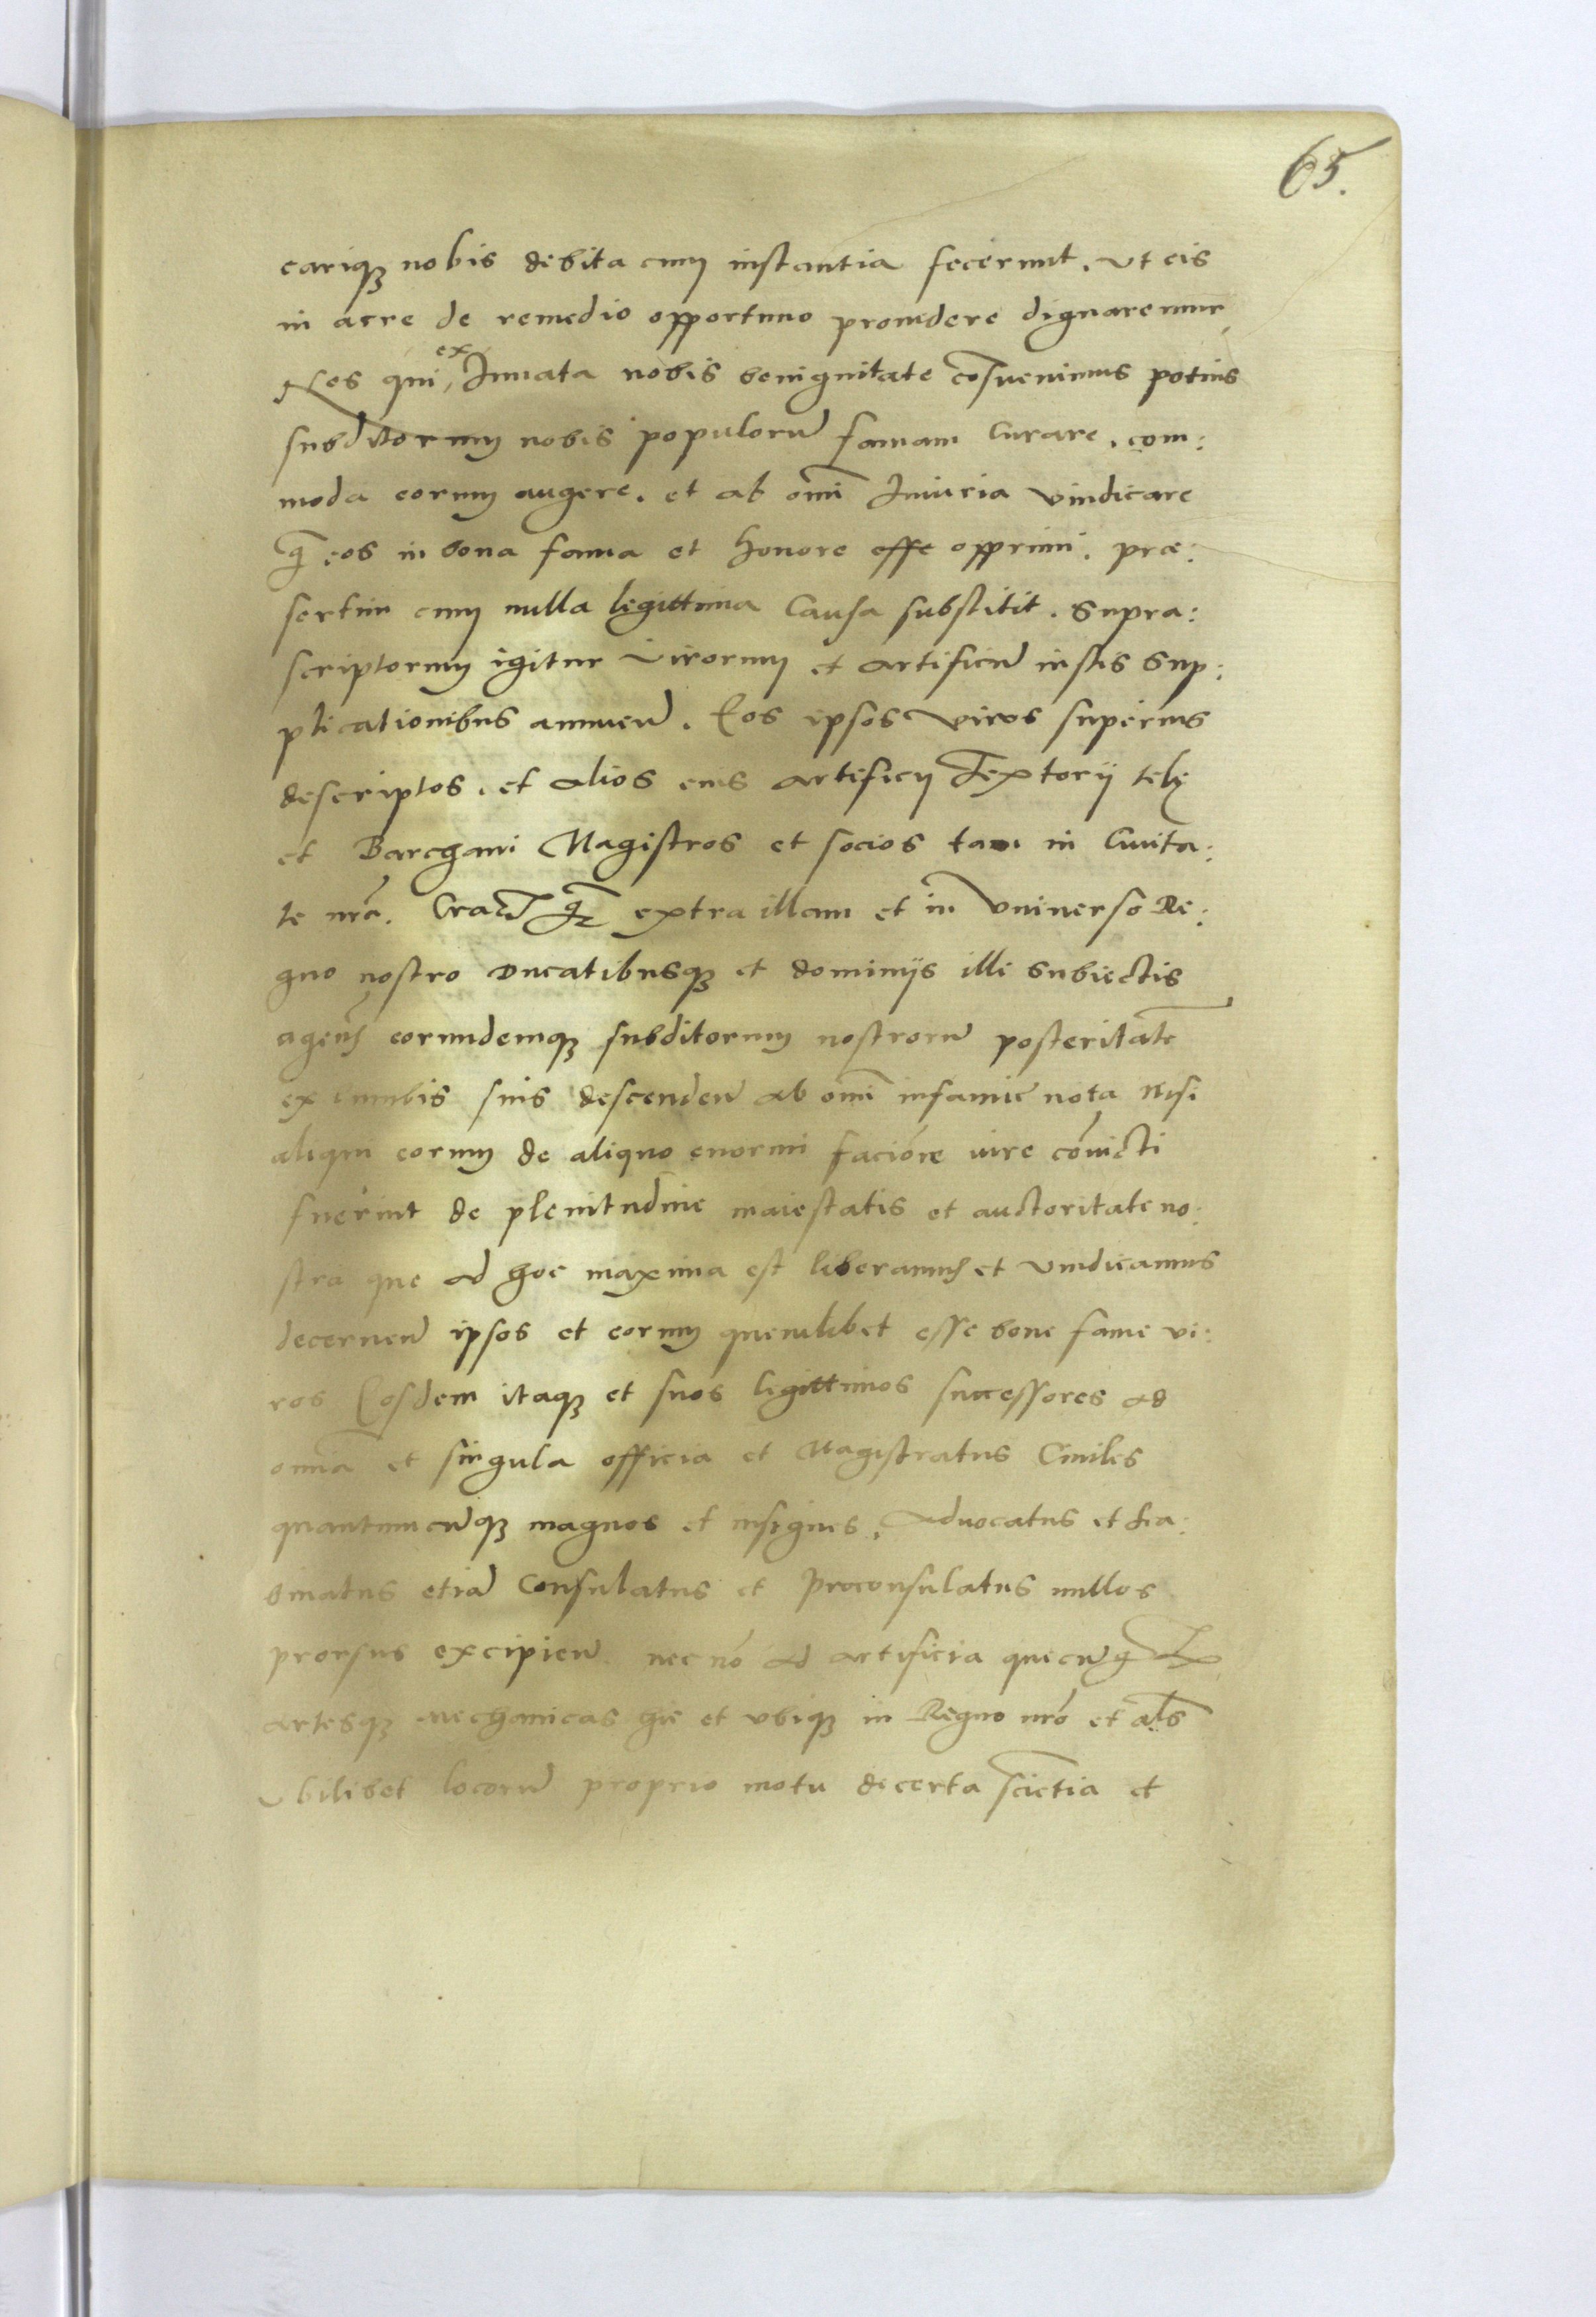 65.
carique nobis debita cum instantia fecerunt. Vt eis
in acre de remedio opportuno prouidere dignaremur
Nos qui ex Innata nobis benignitate cosuenimus potius
subditorum nobis populorũ famam Curare. com:
moda eorum augere. et ab oĩm Iniuria vindicare
q̃ eos in bona fama et honore esse opprimi. præ:
sertim cum nulla legittima Causa substitit. Supra:
scriptorum igitur Virorum et artificiũ iustis Sup:
plicationibus annuen̄. Eos ipsos viros superius
descriptos. et alios eius artificij Textorij telę
et Barchani Magistros et socios tam in Ciuita:
te nr̃a. Crac̄ q̃ extra illam et in Vniuerso Re:
gno nostro Ducatibusque et dominijs illi Subiectis
agen̄ eorundemque subditorum nostrorũ posteritatẽ
ex lumbis suis descenden̄ ab om̃i infamie nota Nisi
aliqui eorum de aliquo enormi faciõre iure cõuicti
fuerint de plenitudine maiestatis et auctoritate no:
stra que ad hoc maxima est liberamus et vindicamus
decernen̄ ipsos et eorum quemlibet esse bone fame vi:
ros Eosdem itaque et suos legittimos successores ad
om̃ia et singula officia et Magistratus Ciuiles
quantumcũque magnos et insignes. Aduocatus et sca:
binatus etiã Consulatus et Proconsulatus nullos
prorsus excipien̄. nec nõ ad artificia quecũq
artesque mechanicas hic et vbique in Regno nr̃o et al̃s
Vbilibet locorũ proprio motu de certa sciẽtia et